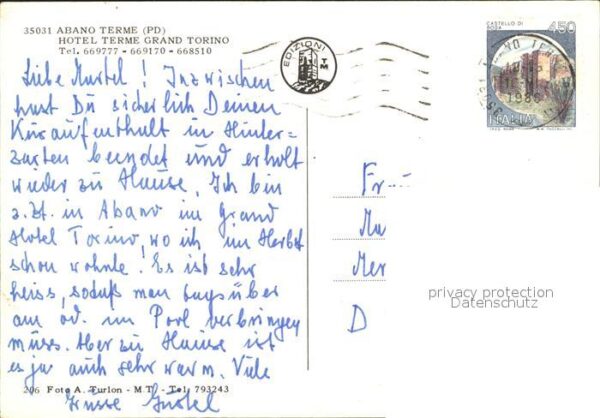 35031 ABANO TERME (PD)
HOTEL TERME GRAND TORINO
Tel. 669777 - 669170 - 668510
Liebe Murtel! Inzwischen
hast Du sicherlich Deinen
Kuraufenthalt in Hinter-
zarten beendet und erholt
wieder zu Hause. Ich bin
z. Zt. in Abano im Grand
Hotel Torino, wo ich im Herbst
schon wohnte. Es ist sehr
heiss, sodaß man tagsüber
am od. im Pool verbringen
muss. Aber zu Hause ist
es ja auch sehr warm. Viele
Grüsse Gustel
206 Foto A. Turlon - M.T. - Tel. 793243
EDIZIONI
TM
CASTELLO DI
450
1986
ITALIA
Fr
Mer
D
privacy protection
Datenschutz